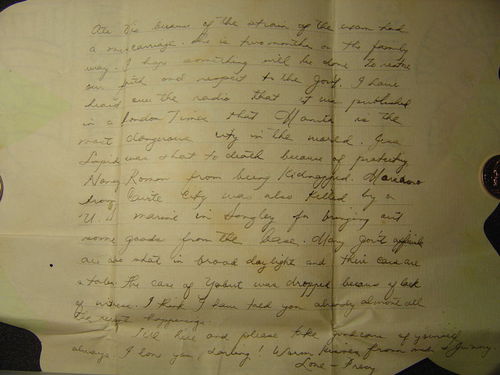 Ate Vi because of the strain of the exam had
a miscarriage. She is two months on the family
way. I hope something will be done to restore
our faith and respect to the Govt. I have
heard over the radio that it was published
in a London Times that Manila is the
most dangerous city in the world. Jess
Lapid was shot to death because of protecting
Nancy Roman from being kidnapped. Mariano
Cavite City was also killed by a
U.S. marine in Sangley for bringing out
some goods from the base. Many Gov't officials
are shot in broad day light and their cars are
stolen. The case of Yabut was dropped because of lack
of witness. I think I have told you already almost all
the recent happenings.
I'll here and please take good care of yourself
always. I love you, darling! Warm kisses from me &
Love -